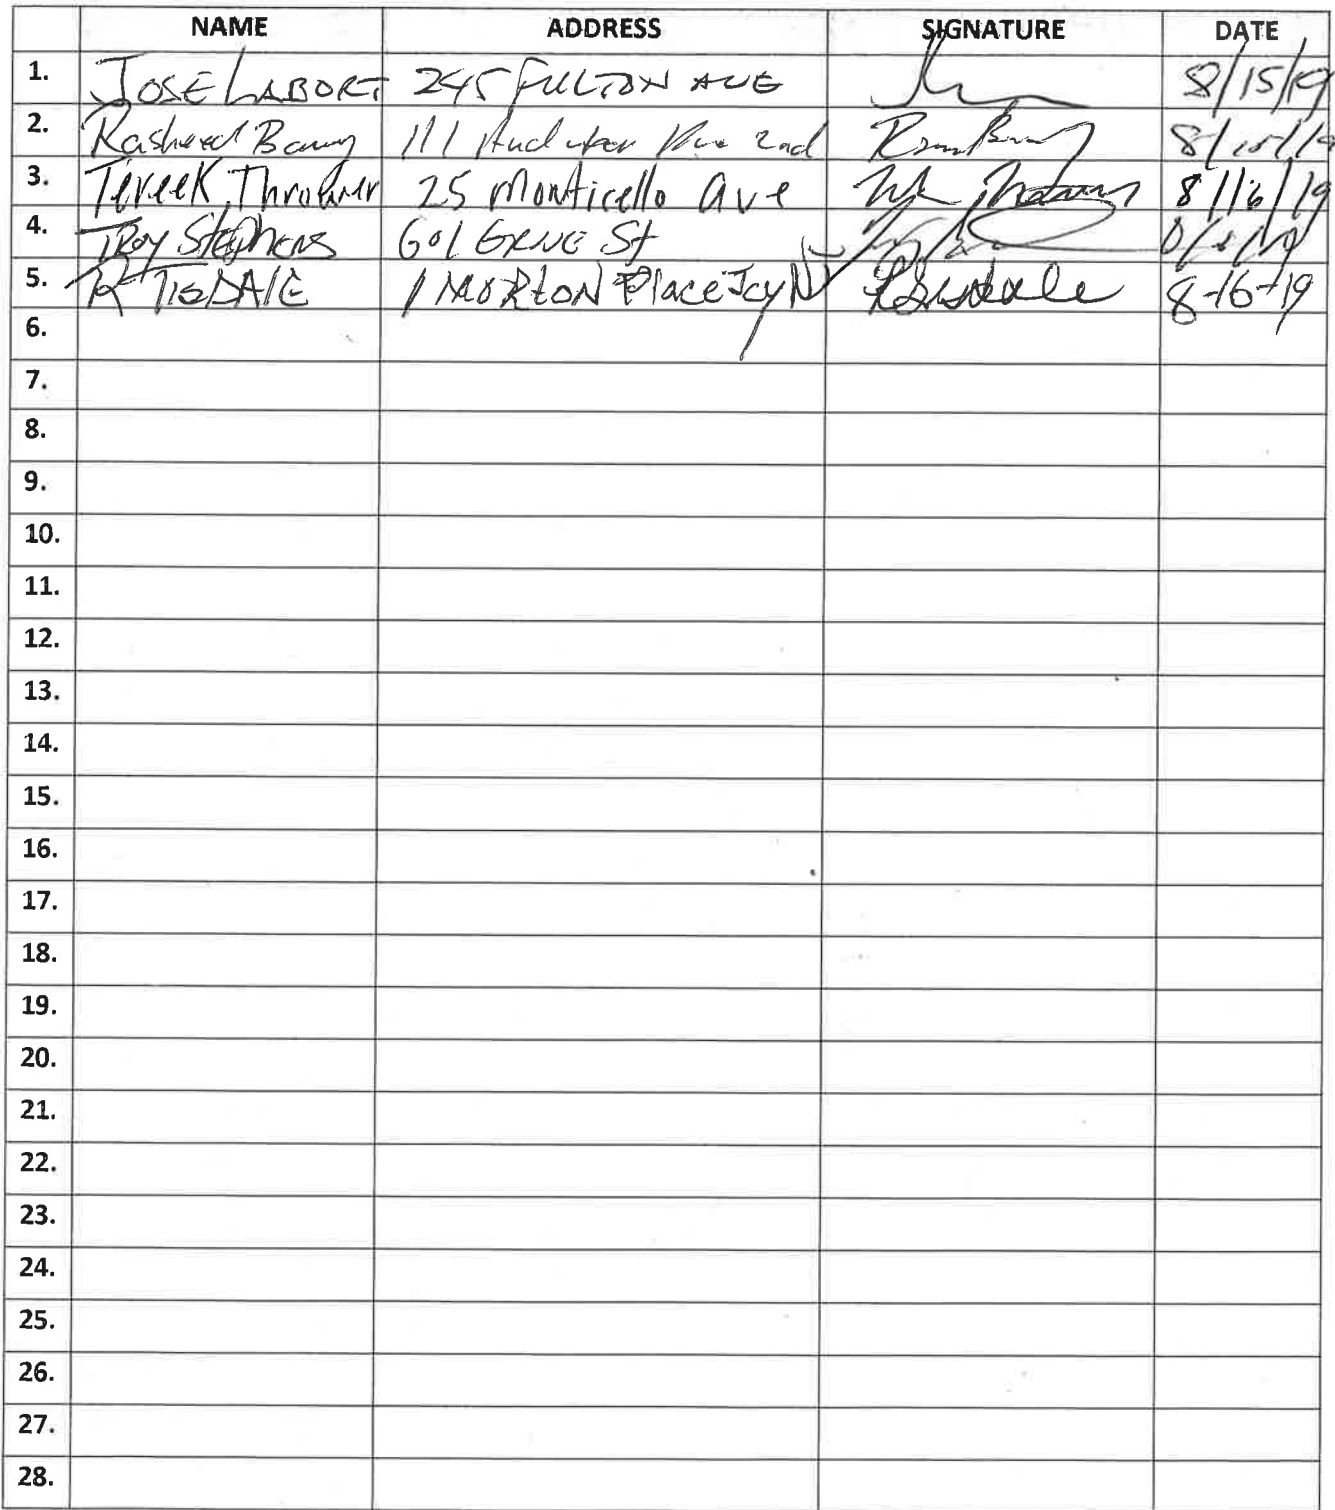 NAME ADDRESS SIGNATURE DATE
1. JOSE LABORT 245 FULTON AVE 8/15/19
2. Rasheed 111 2nd 8/15/19
3. Tereek 25 Monticello Ave 8/16/19
4. TROY Stephens 601 St
5. R TISDALE 1 MORTON Place Jcy NJ RTisdale 8-16-19
6.
7.
8.
9.
10.
11.
12.
13.
14.
15.
16.
17.
18.
19.
20.
21.
22.
23.
24.
25.
26.
27.
28.